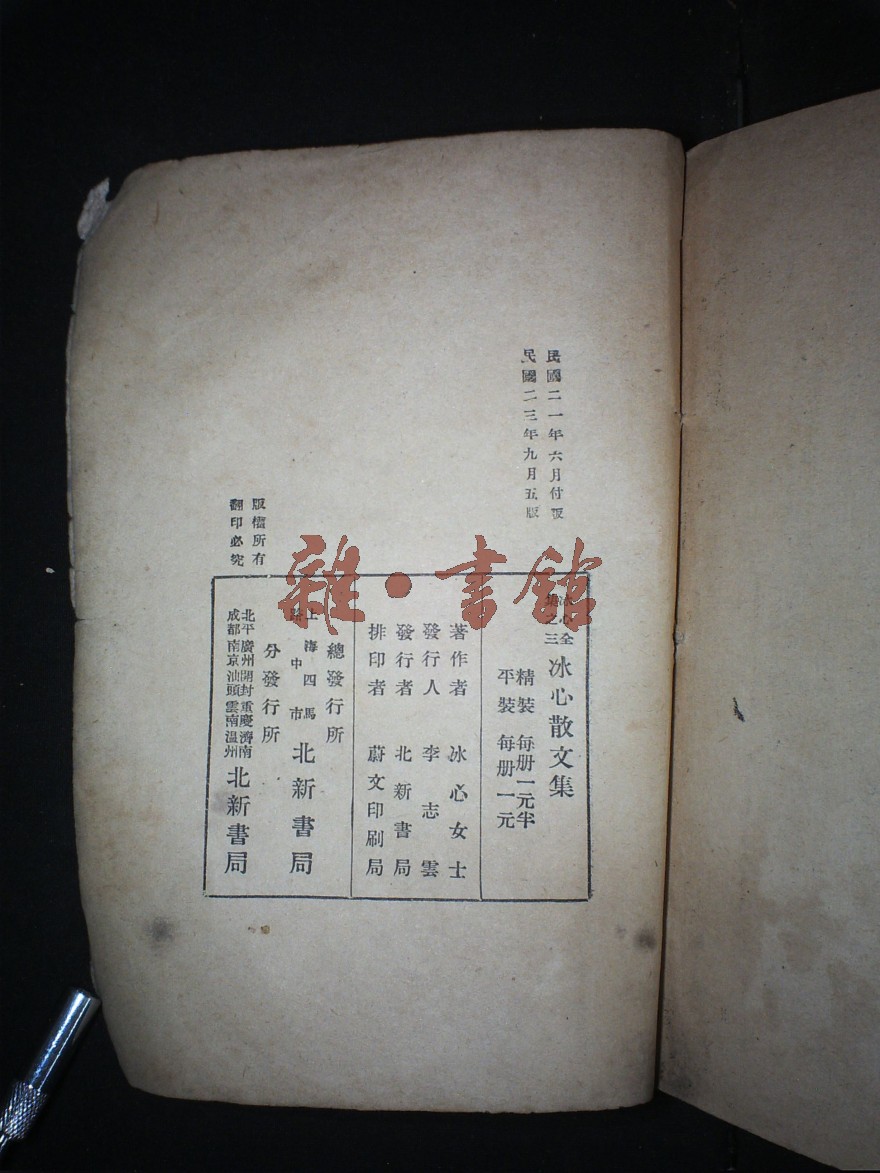 民國二一年六月付版
民國二三年九月五版
版權所有
翻印必究
冰心全
集之三
冰心散文集
精裝 每册一元半
平裝 每册一元
著作者 冰心女士
發行人 李志雲
發行者 北新書局
排印者 蔚文印刷局
總發行所
上海四馬
路中市
北新書局
分發行所
北平廣州開封重慶濟南
成都南京汕頭雲南溫州
北新書局
雜·書館